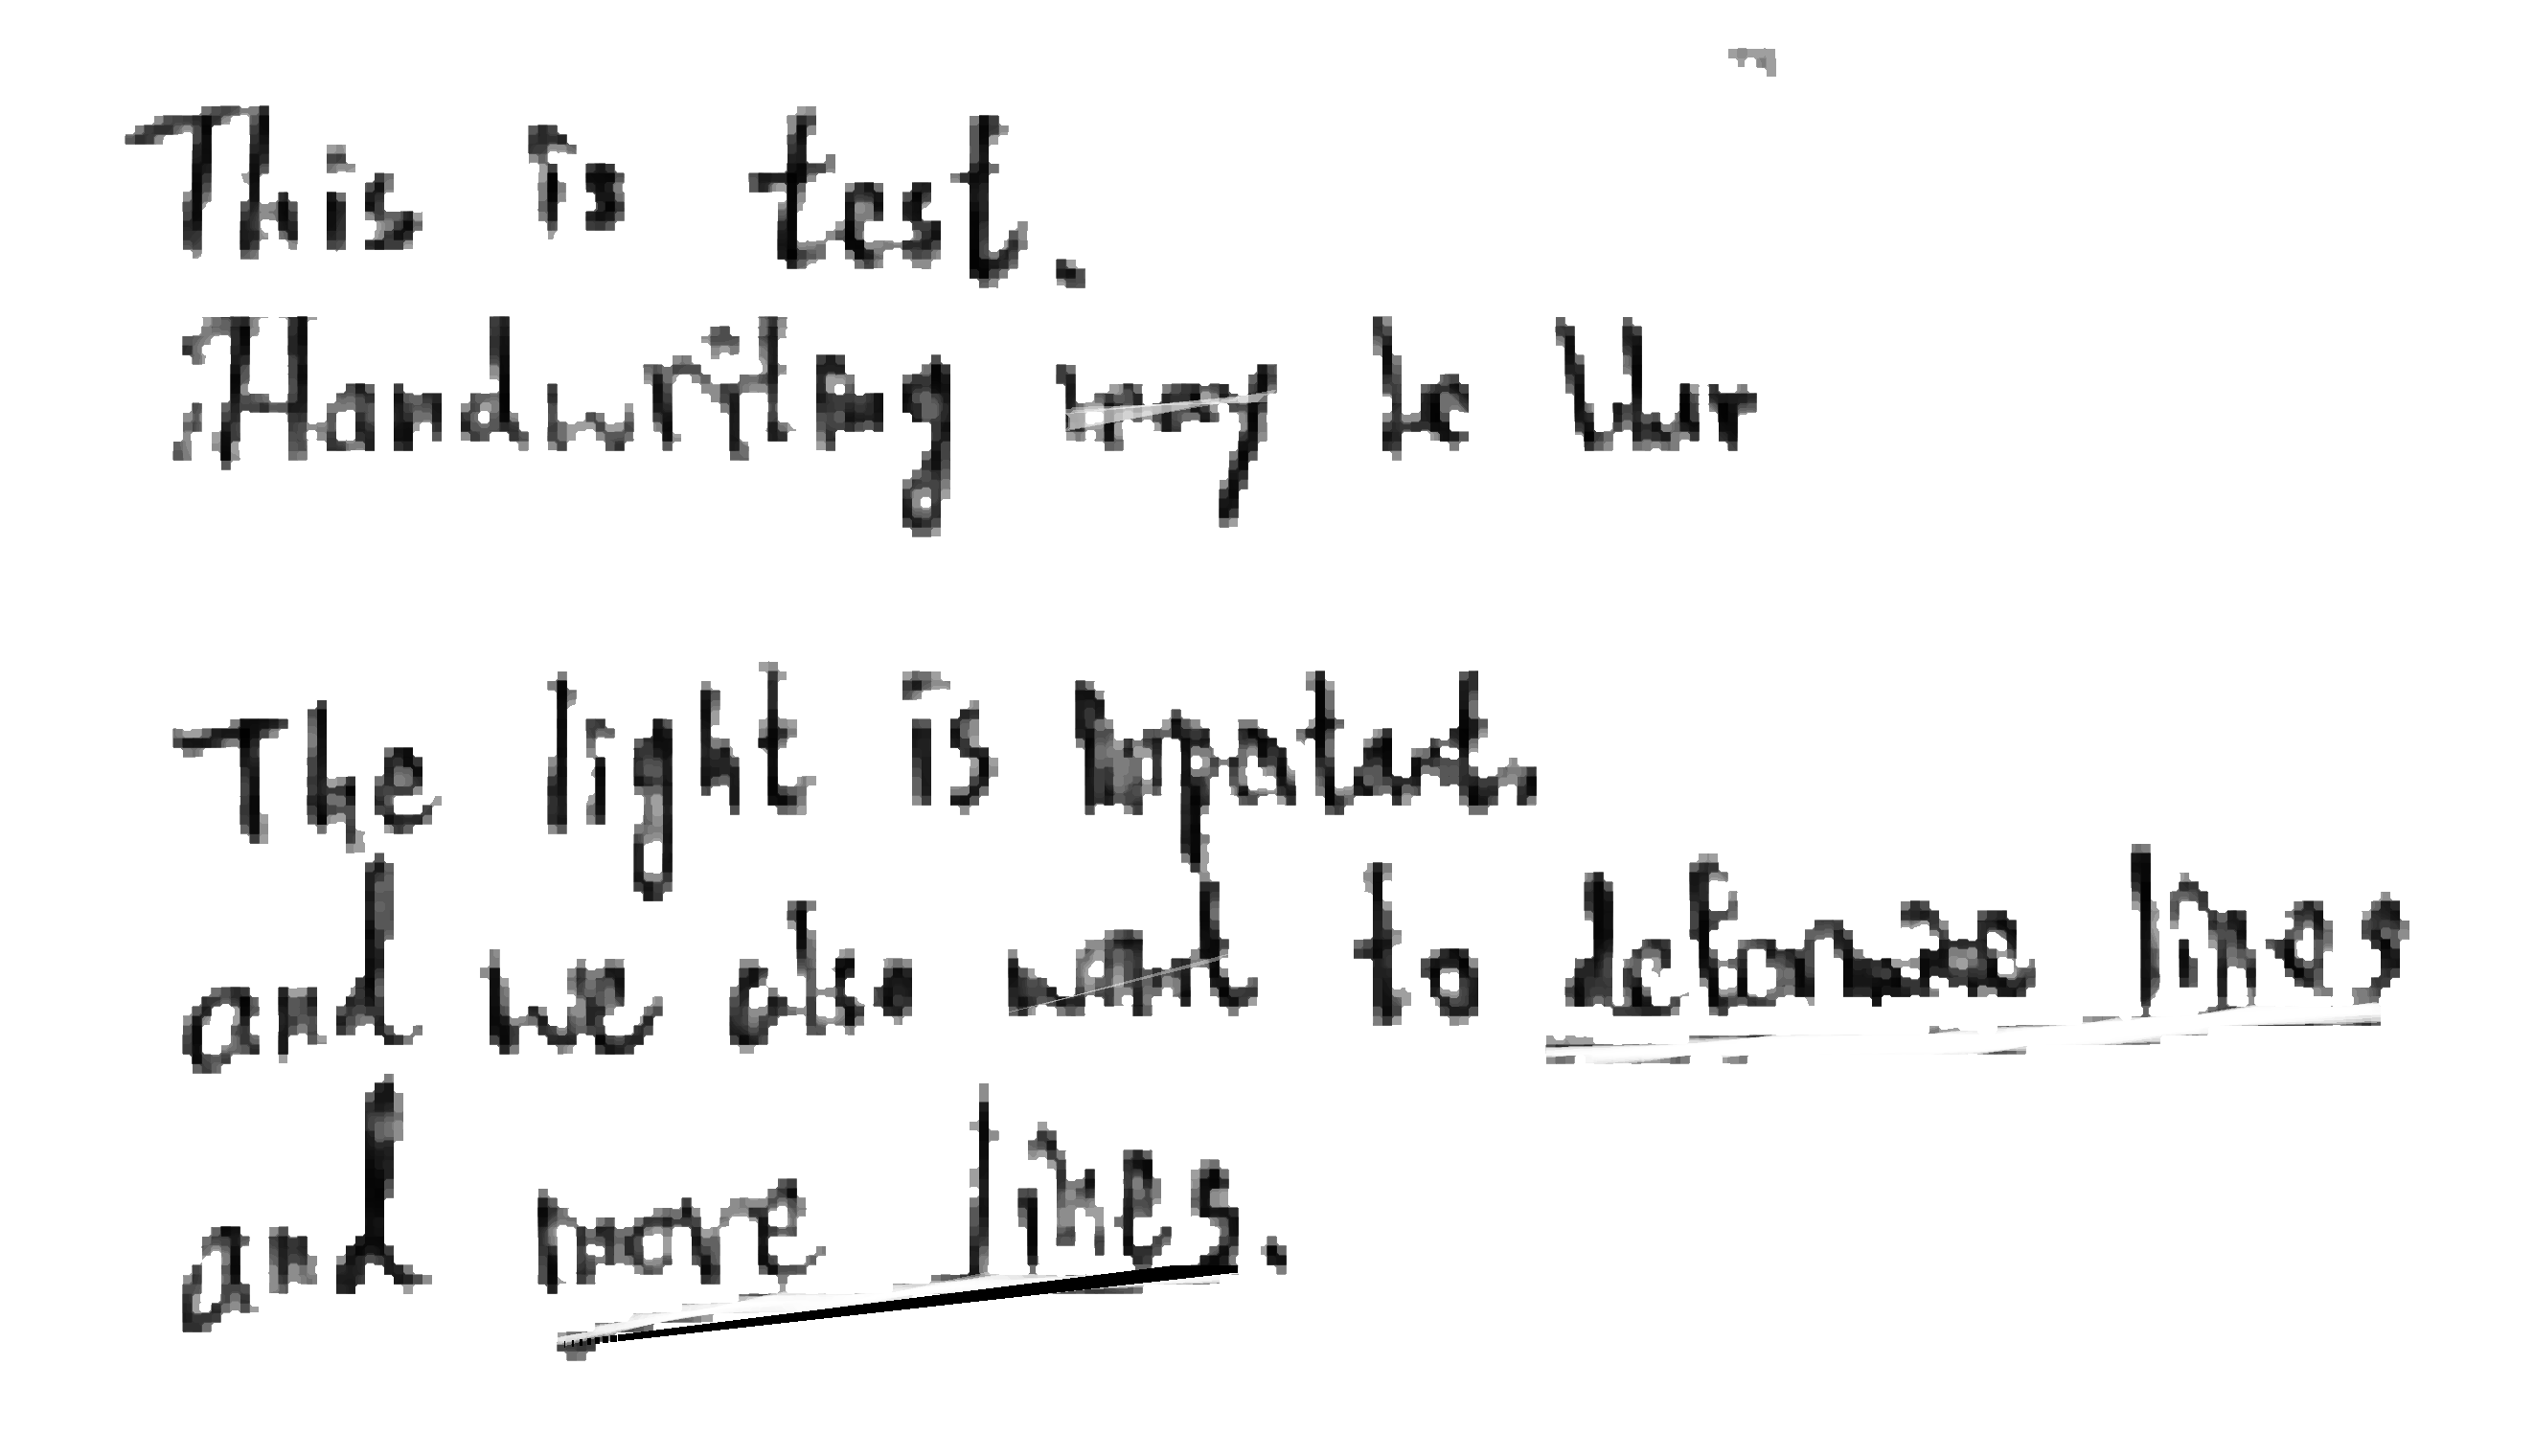 This is test.
Handwriting may be blur
The light is important,
and we also want to lines
and more lines.